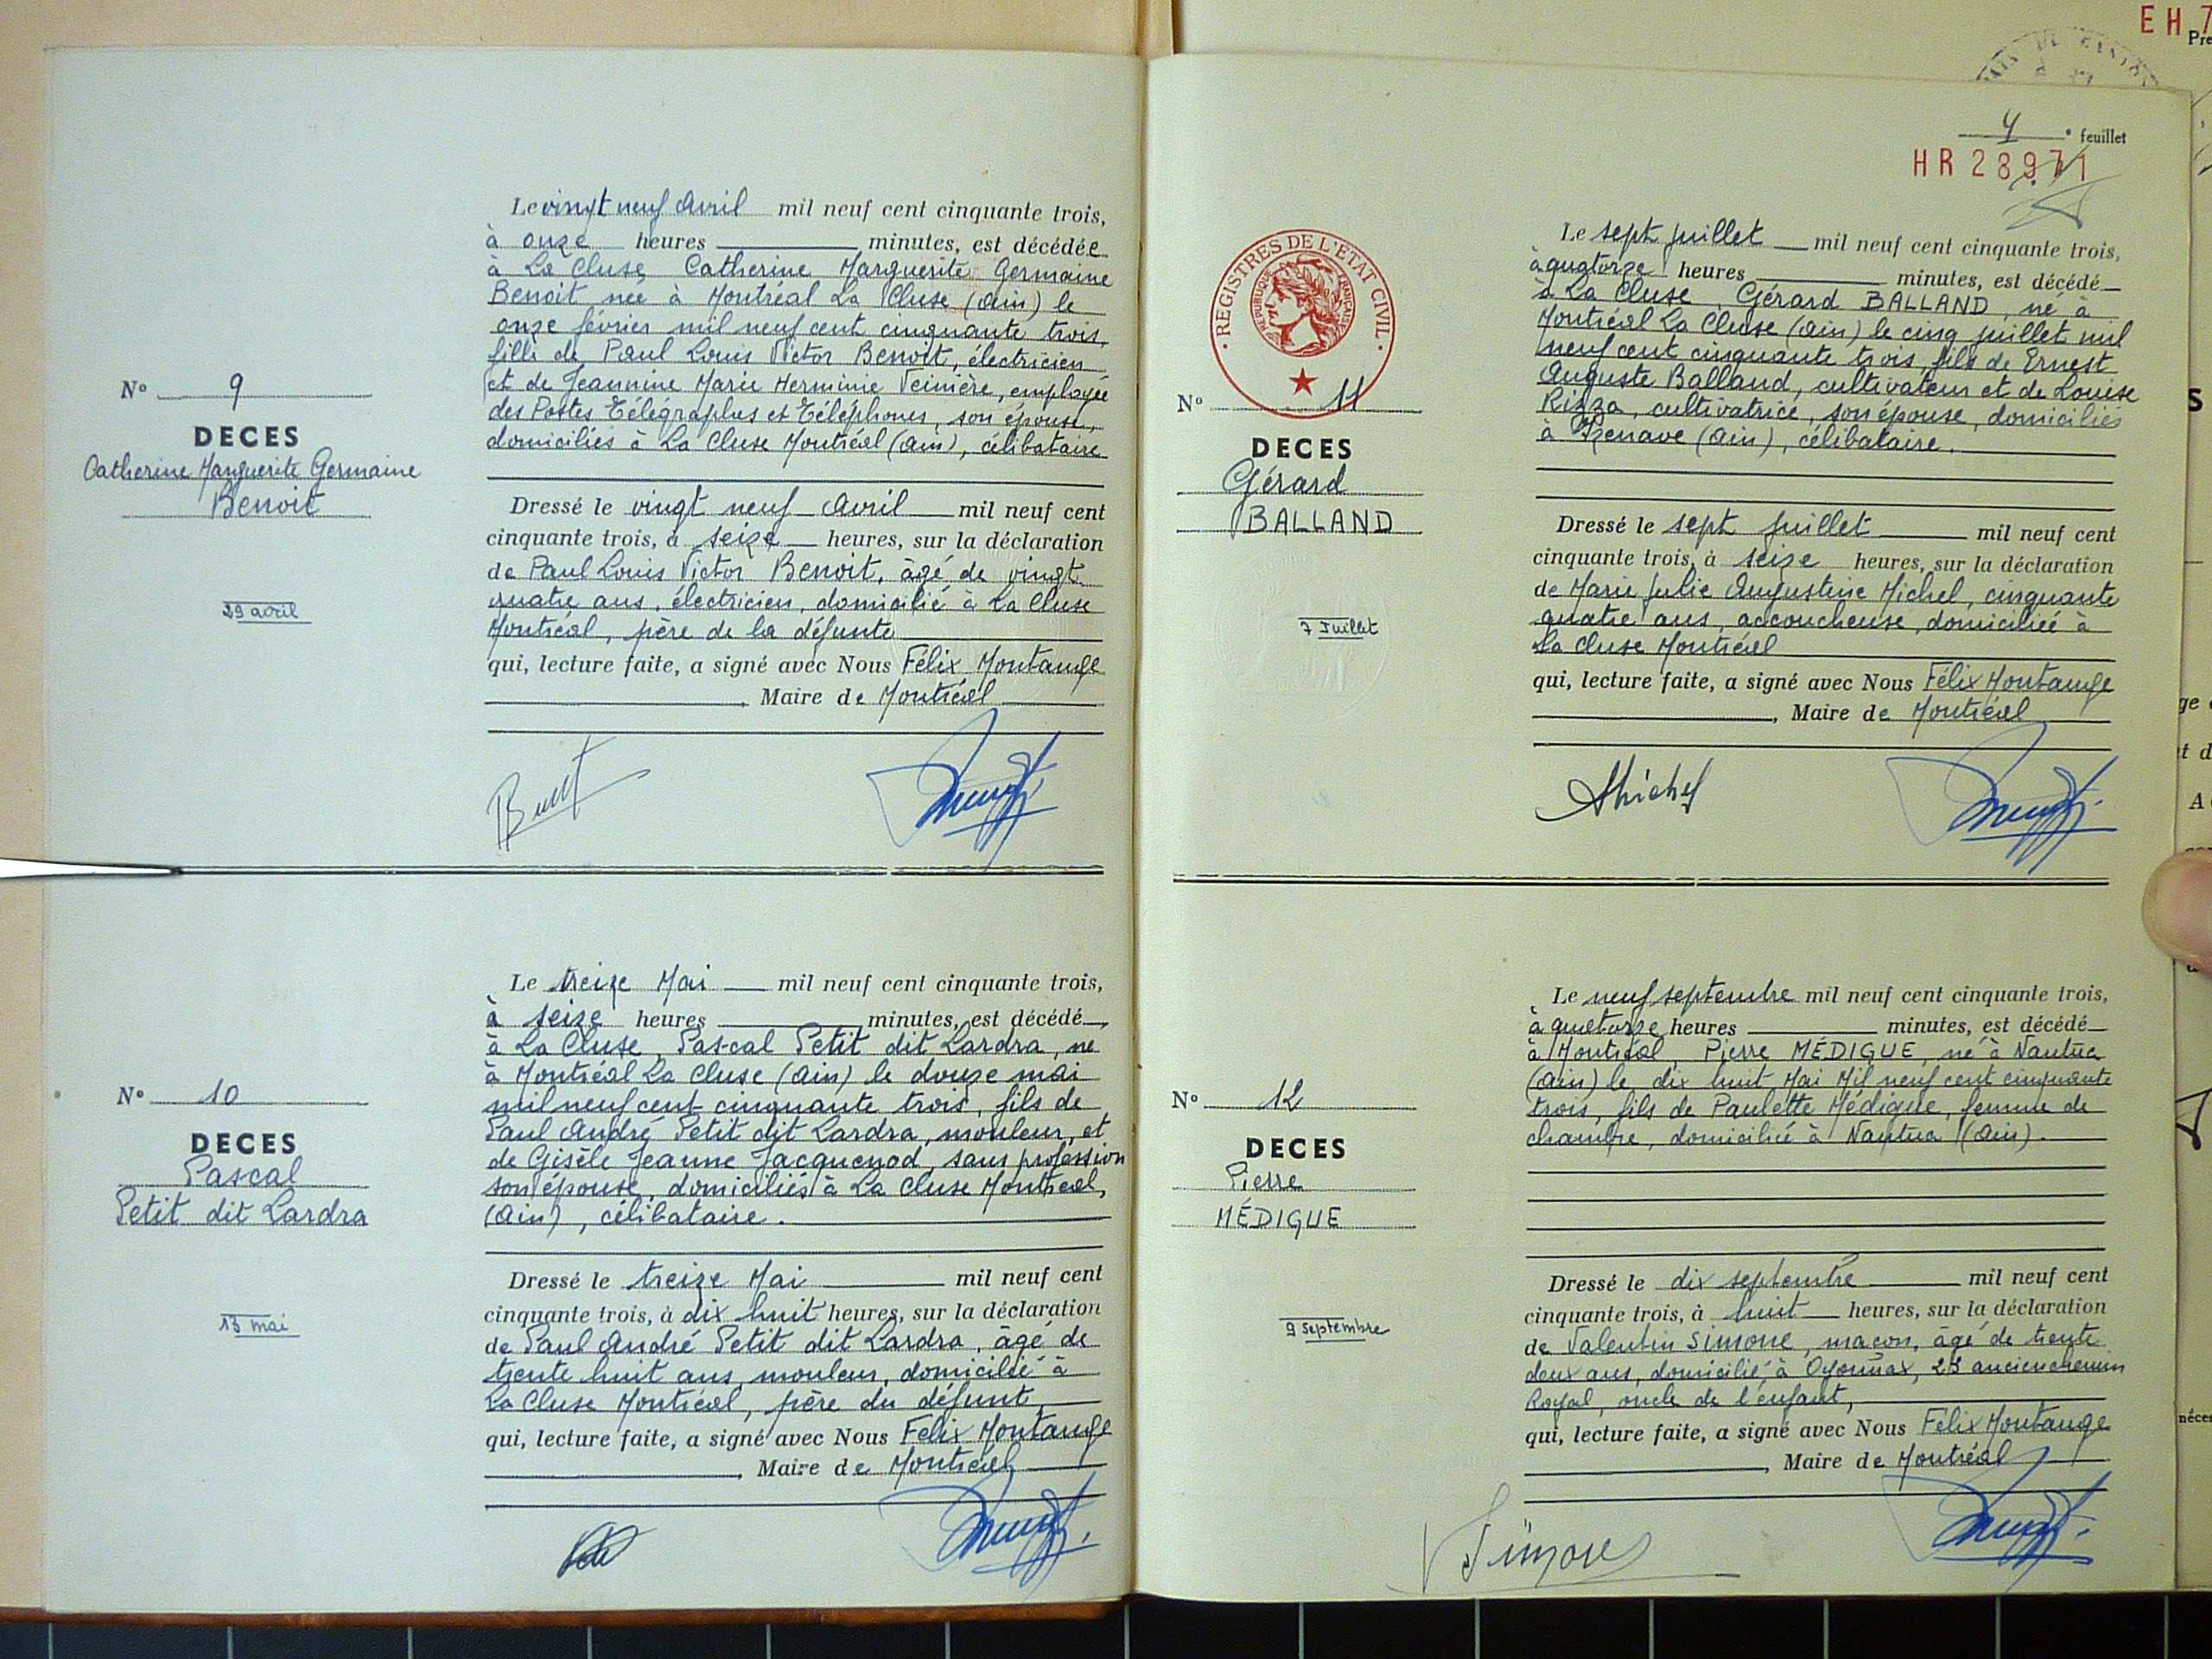 Le vingt neuf Avril mil neuf cent cinquante trois,
à onze heures minutes, est décédée
à La Cluse, Catherine Marguerite Germaine
Benoit née à Montréal La Cluse (Ain) le
onze février mil neuf cent cinquante trois,
fille de Paul Louis Victor Benoit, électricien
et de Jeannine Marie Herminie Teinière, employée
des Postes Télégraphes et Téléphones, son épouse,
domiciliés à La Cluse Montréal (Ain), célibataire
N° 9
DECES
Catherine Marguerite Germaine
Benoit
29 avril
Dressé le vingt neuf Avril mil neuf cent
cinquante trois, à seize heures, sur la déclaration
de Paul Louis Victor Benoit, âgé de vingt
quatre ans, électricien, domicilié à La Cluse
Montréal, père de la défunte
qui, lecture faite, a signé avec Nous Félix Montange
, Maire de Montréal
Le treize Mai mil neuf cent cinquante trois,
à seize heures minutes, est décédé
à La Cluse, Pascal Petit dit Lardra, né
à Montréal La Cluse (Ain) le douze mai
mil neuf cent cinquante trois, fils de
Paul André Petit dit Lardra, mouleur, et
de Gisèle Jeanne Jacquenod, sans profession
son épouse, domiciliés à La Cluse Montréal,
(Ain), célibataire.
N° 10
DECES
Pascal
Petit dit Lardra
13 mai
Dressé le treize Mai mil neuf cent
cinquante trois, à dix huit heures, sur la déclaration
de Paul André Petit dit Lardra, âgé de
trente huit ans, mouleur, domicilié à
La Cluse Montréal, père du défunt,
qui, lecture faite, a signé avec Nous Félix Montange
, Maire de Montréal
EH 7
4e feuillet
HR 28971
REGISTRES DE L'ÉTAT CIVIL
REPUBLIQUE FRANÇAISE
Le sept juillet mil neuf cent cinquante trois,
à quatorze heures minutes, est décédé
à La Cluse, Gérard BALLAND, né à
Montréal La Cluse (Ain) le cinq juillet mil
neuf cent cinquante trois, fils de Ernest
Auguste Balland, cultivateur et de Louise
Rizza, cultivatrice, son épouse, domiciliés
à Izenave (Ain), célibataire.
N° 11
DECES
Gérard
BALLAND
7 Juillet
Dressé le sept juillet mil neuf cent
cinquante trois, à seize heures, sur la déclaration
de Marie Julie Augustine Michel, cinquante
quatre ans, accoucheuse, domiciliée à
La Cluse Montréal
qui, lecture faite, a signé avec Nous Félix Montange
, Maire de Montréal
Le neuf septembre mil neuf cent cinquante trois,
à quatorze heures minutes, est décédé
à Montréal, Pierre MÉDIGUE, né à Nantua
(Ain) le dix huit Mai Mil neuf cent cinquante
trois, fils de Paulette Médigue, femme de
chambre, domiciliée à Nantua (Ain).
N° 12
DECES
Pierre
MÉDIGUE
9 septembre
Dressé le dix septembre mil neuf cent
cinquante trois, à huit heures, sur la déclaration
de Valentin Simone, maçon, âgé de trente
deux ans, domicilié à Oyonnax, 23 ancien chemin
Royal, oncle de l'enfant,
qui, lecture faite, a signé avec Nous Félix Montange
, Maire de Montréal
Simone